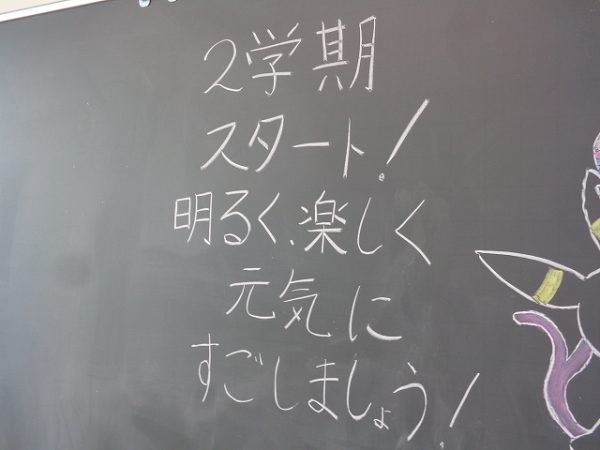 2学期
スタート!
明るく、楽しく
元気に
すごしましょう!